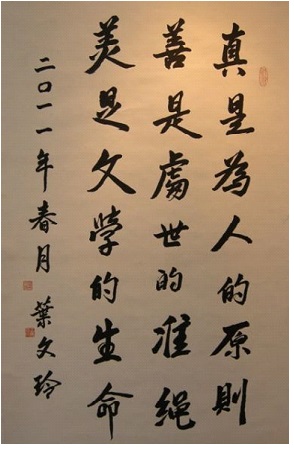 真是為人的原則
善是處世的准繩
美是文學的生命
二〇一一年春月 葉文玲